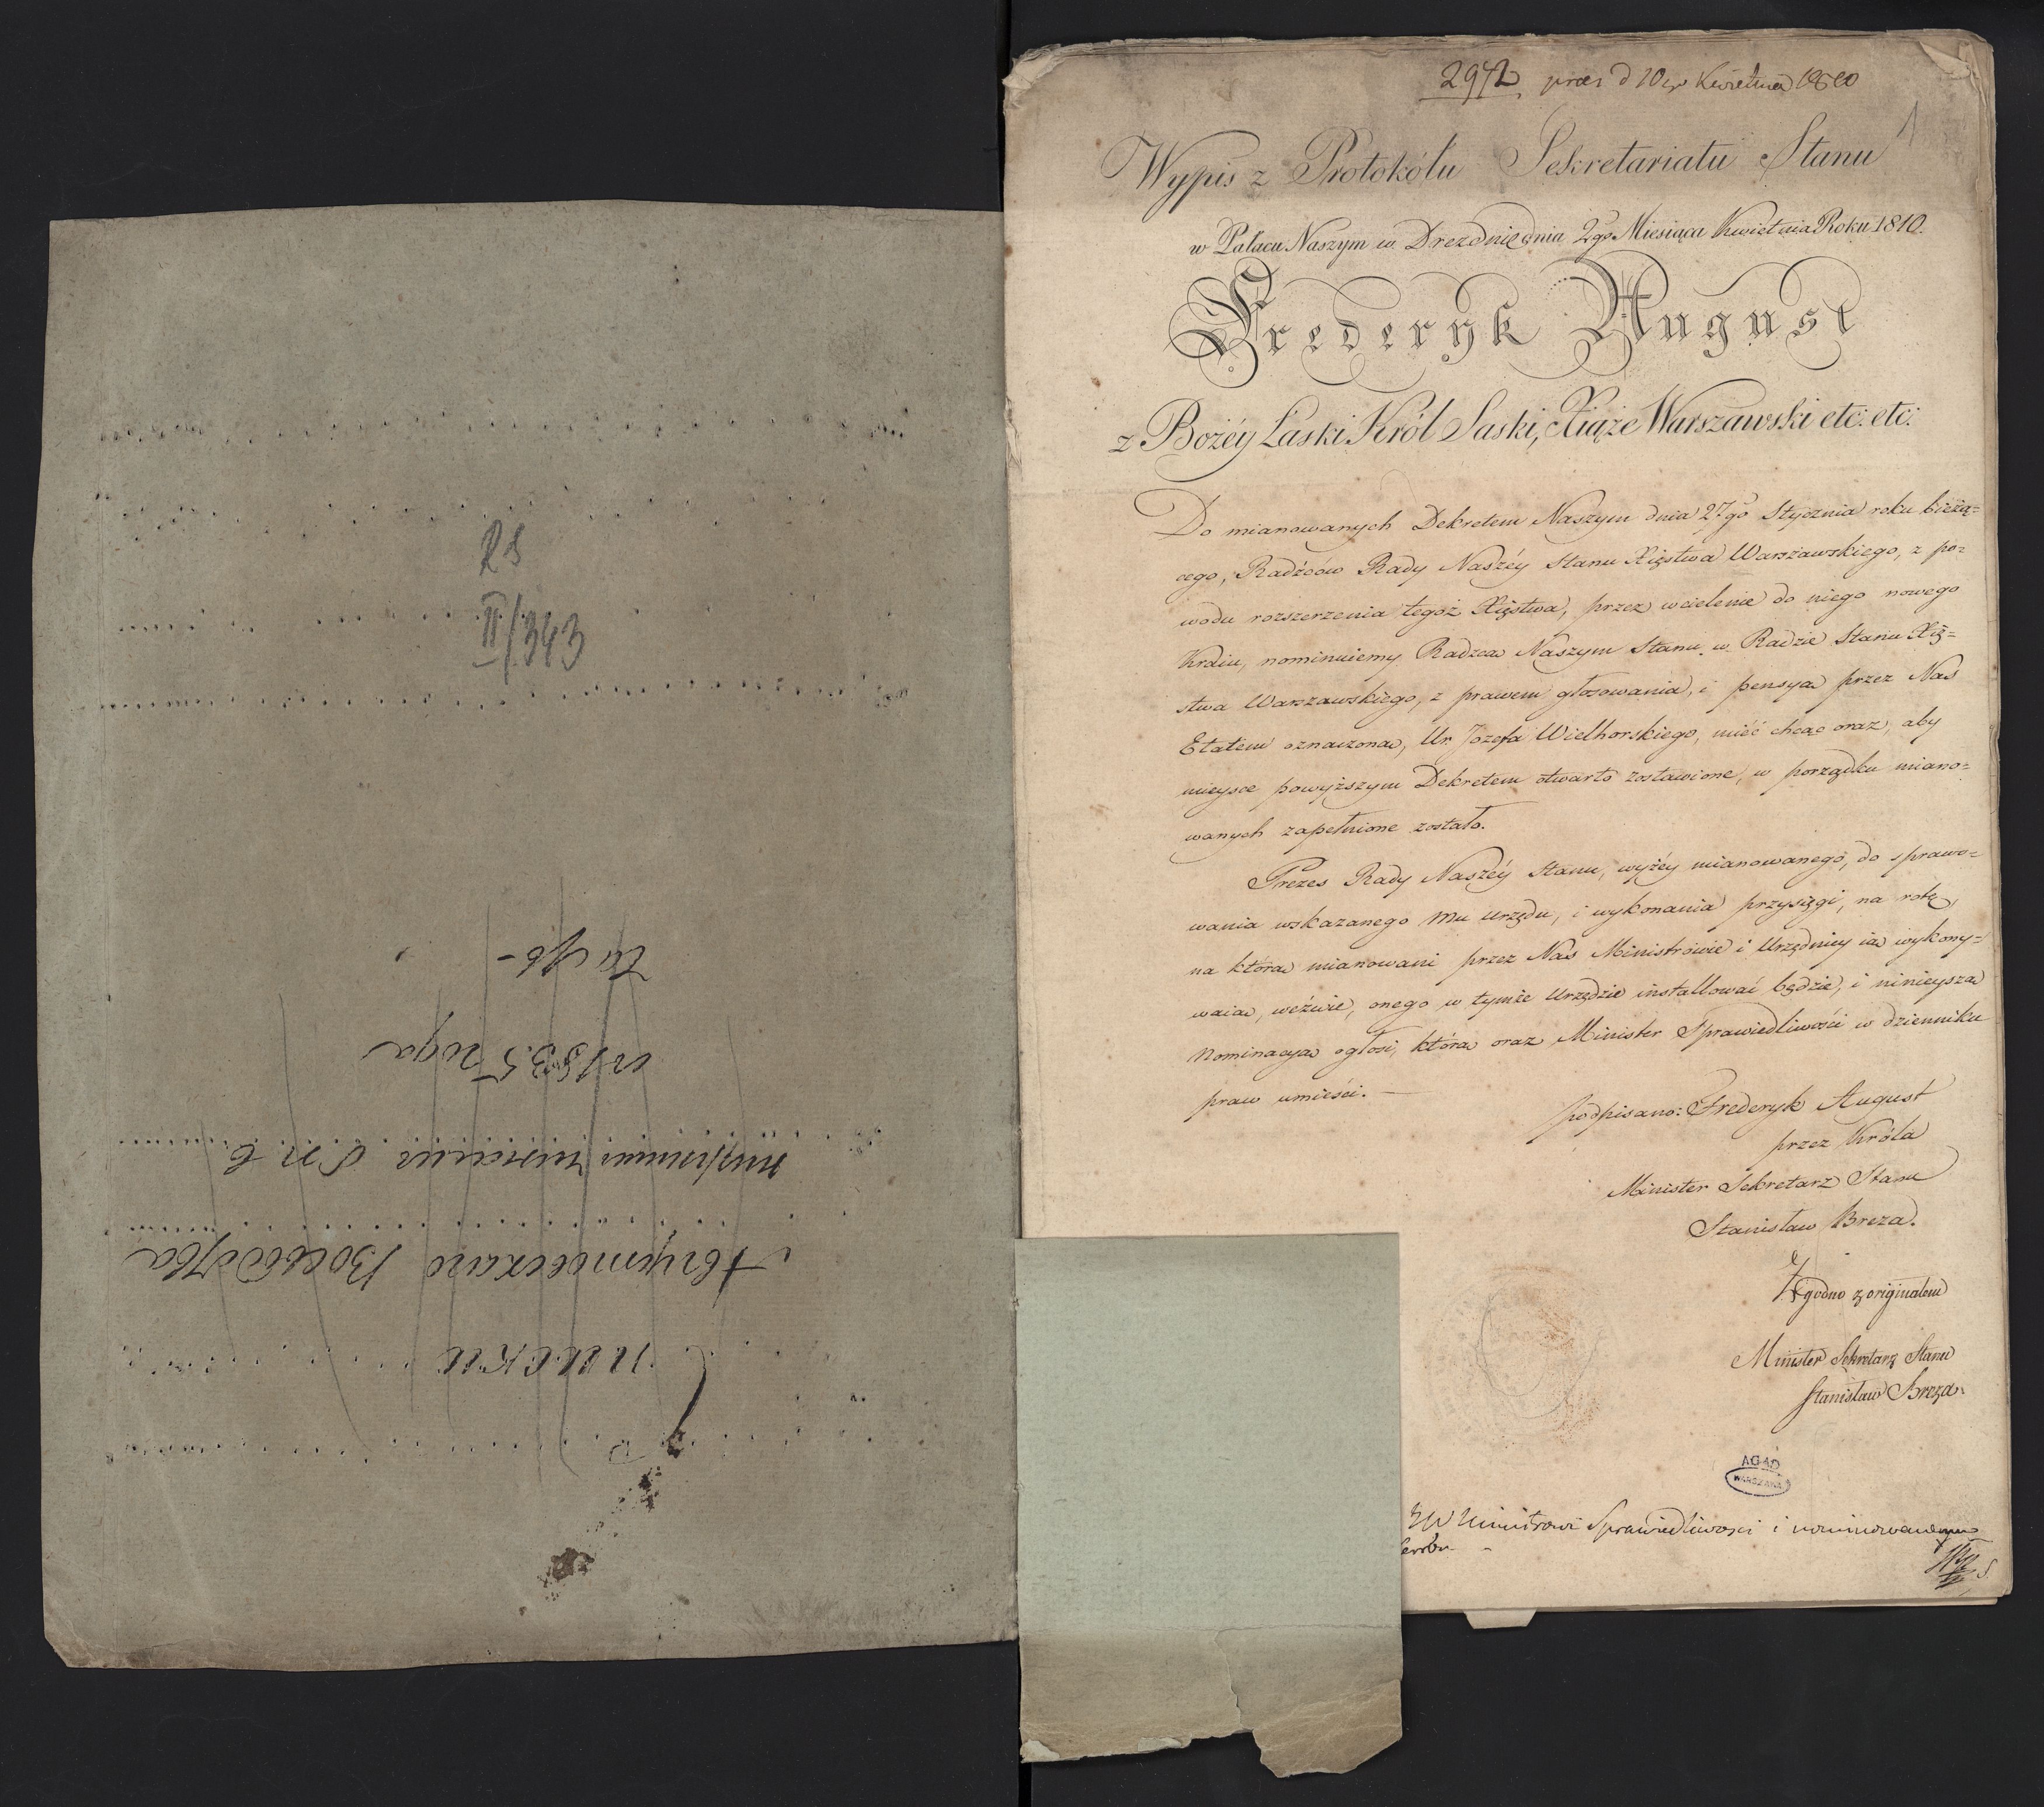 RS
II/343
Списки
Августовскаго Воеводства
1835 года
2972 praes d 10go Kwietnia 1810
1
Wypis z Protokółu Sekretariatu Stanu
w Pałacu Naszym w Dreznie dnia 2go Miesiąca Kwietnia Roku 1810.
Frederyk August
z Bożéy Łaski Król Saski, Xiąże Warszawski etc: etc:
Do mianowanych Dekretem Naszym dnia 27go Stycznia roku bieżą=
cego, Radźców Rady Naszéy Stanu Xięstwa Warszawskiego, z po=
wodu rozszerzenia tegoż Xięstwa, przez wcielenie do niego nowego
Kraiu, nominuiemy Radzcą Naszym Stanu w Radzie Stanu Xię=
stwa Warszawskiego, z prawem głosowania, i pensyą przez Nas
Etatem oznaczoną, Ur. Jozefa Wielhorskiego, mieć chcąc oraz, aby
mieysce powyższym Dekretem otwarto zostawione, w porządku miano=
wanych zapełnione zostało.
Prezes Rady Naszéy Stanu, wyżéy mianowanego, do sprawo=
wania wskazanego mu urzędu, i wykonania przysięgi, na rotę,
na którą mianowani przez Nas Ministrowie i Urzędnicy ią wykony=
waią, wezwie, onego w tymże Urzędzie installować będzie, i ninieyszą
Nominacyą ogłosi, którą oraz Minister Sprawiedliwości w dzienniku
praw umieści. —
podpisano: Frederyk August
przez Króla
Minister Sekretarz Stanu
Stanisław Breza.
Zgodno z originałem
Minister Sekretarz Stanu
Stanisław Breza.
AGAD
WARSZAWA
Ministrowi Sprawiedliwosci i nominowanemu